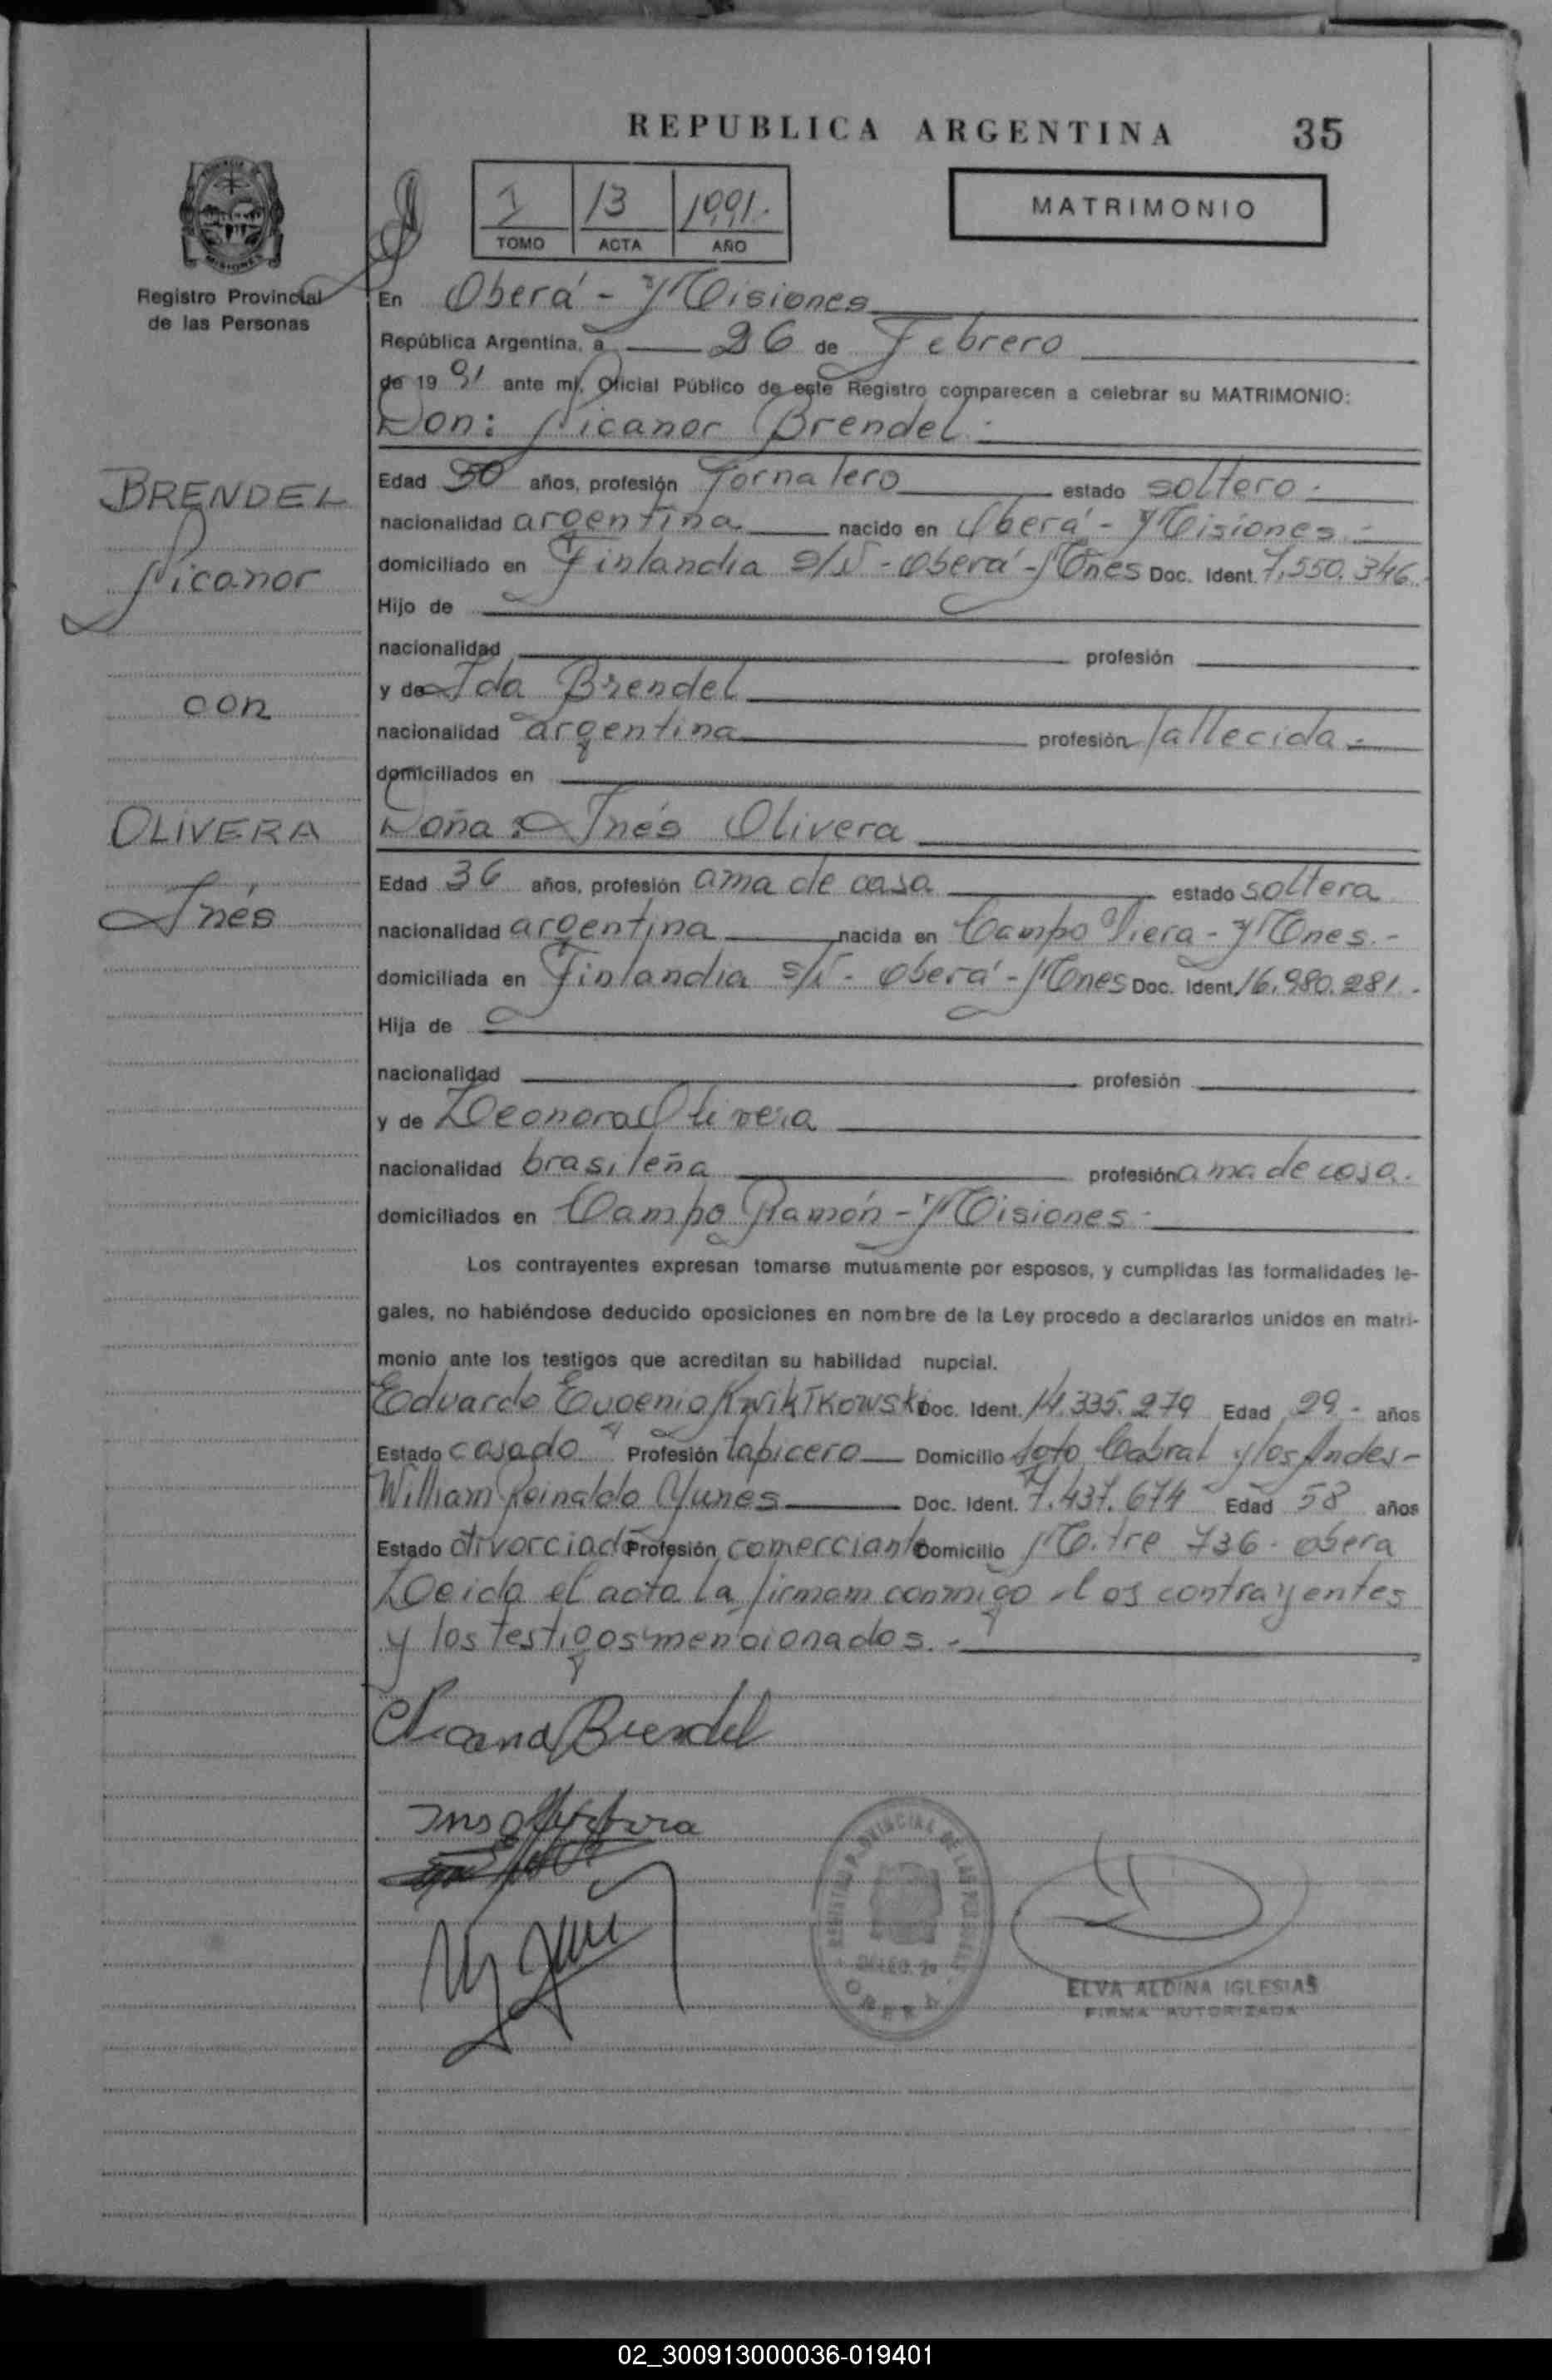 REPUBLICA ARGENTINA 35
MATRIMONIO
1 13 1991.
TOMO ACTA AÑO
Registro Provincial
de las Personas
En Oberá - Misiones
República Argentina, a 26 de Febrero
de 1991 ante mí, Oficial Público de este Registro comparecen a celebrar su MATRIMONIO:
Don: Nicanor Brendel.
BRENDEL
Nicanor
con
OLIVERA
Inés
Edad 50 años, profesión Jornalero estado soltero.
nacionalidad argentina nacido en Oberá - Misiones.-
domiciliado en Finlandia s/N - Oberá - Mnes Doc. Ident. 7.550.346.
Hijo de
nacionalidad profesión
y de Ida Brendel
nacionalidad argentina profesión fallecida.-
domiciliados en
Doña: Inés Olivera
Edad 36 años, profesión ama de casa estado soltera
nacionalidad argentina nacida en Campo Viera - Mnes.-
domiciliada en Finlandia s/N - Oberá - Mnes Doc. Ident. 16.980.281.
Hija de
nacionalidad profesión
y de Leonora Olivera
nacionalidad brasileña profesión ama de casa.
domiciliados en Campo Ramón - Misiones.
Los contrayentes expresan tomarse mutuamente por esposos, y cumplidas las formalidades le-
gales, no habiéndose deducido oposiciones en nombre de la Ley procedo a declararlos unidos en matri-
monio ante los testigos que acreditan su habilidad nupcial.
Eduardo Eugenio Doc. Ident. 14.335.279 Edad 29- años
Estado casado Profesión tapicero Domicilio Soto Cabral y los Andes-
William Reinaldo Yunes Doc. Ident. 7.437.674 Edad 58 años
Estado divorciado Profesión comerciante Domicilio Mitre 736- Obera
Leida el acta la firmam conmigo los contrayentes
y los testigos mencionados.-
Nicanor Brendel
OBERA
ELVA ALDINA IGLESIAS
FIRMA AUTORIZADA
02_300913000036-019401